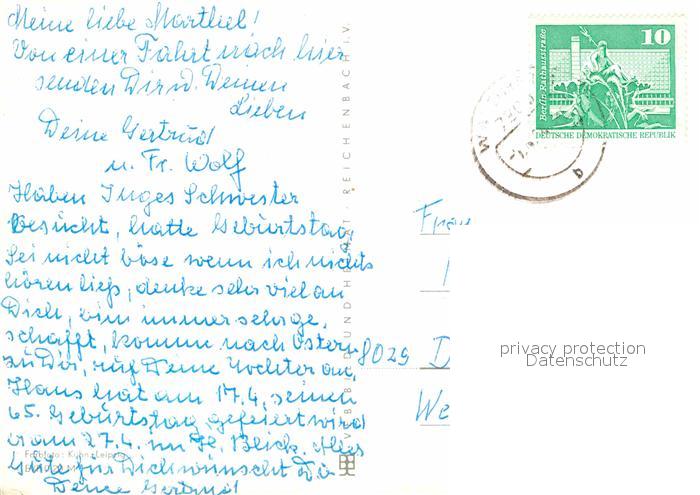 Meine liebe Marthel!
Von einer Fahrt nach hier
senden Dir u. Deinen
Lieben
Deine Gertrud
u. Fr. Wolf
Haben Inges Schwester
besucht, hatte Geburtstag,
Sei nicht böse wenn ich nichts
hören ließ, denke sehr viel an
Dich, bin immer sehr ge,
schafft, komm nach Ostern
zu Dir, ruf Deine Tochter an,
Hans hat am 17.4. seinen
65. Geburtstag, gefeiert wird
er am 27.4. im Alles
Gute für Dich wünscht Dir
Deine Gertrud
Farbfoto: Kuhn, Leipzig
REICHENBACH I. V.
10
Berlin Rathausstraße
DEUTSCHE DEMOKRATISCHE REPUBLIK
Frau
8029 D
We
privacy protection
Datenschutz